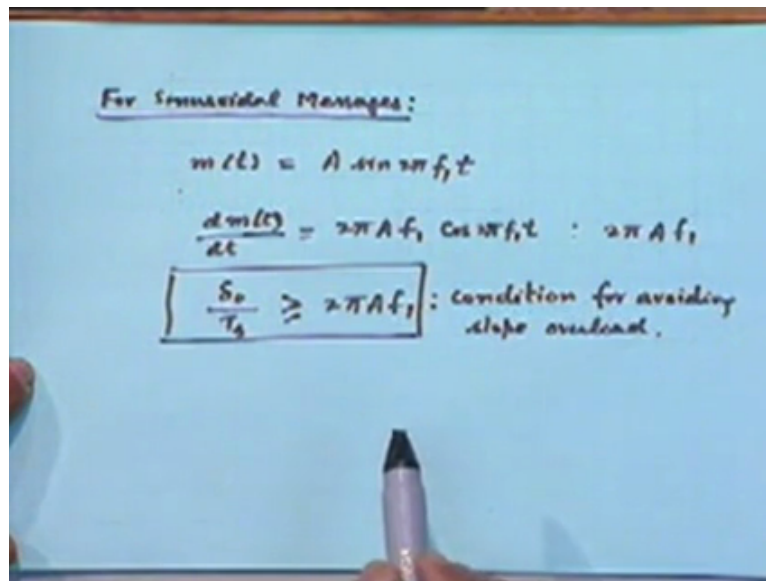 For Sinusoidal Messages:
m(t) = A sin 2π f₁t
dm(t)/dt = 2π A f₁ Cos 2π f₁t : 2π A f₁
δ₀/Tₛ ≥ 2π A f₁ : condition for avoiding
slope overload.